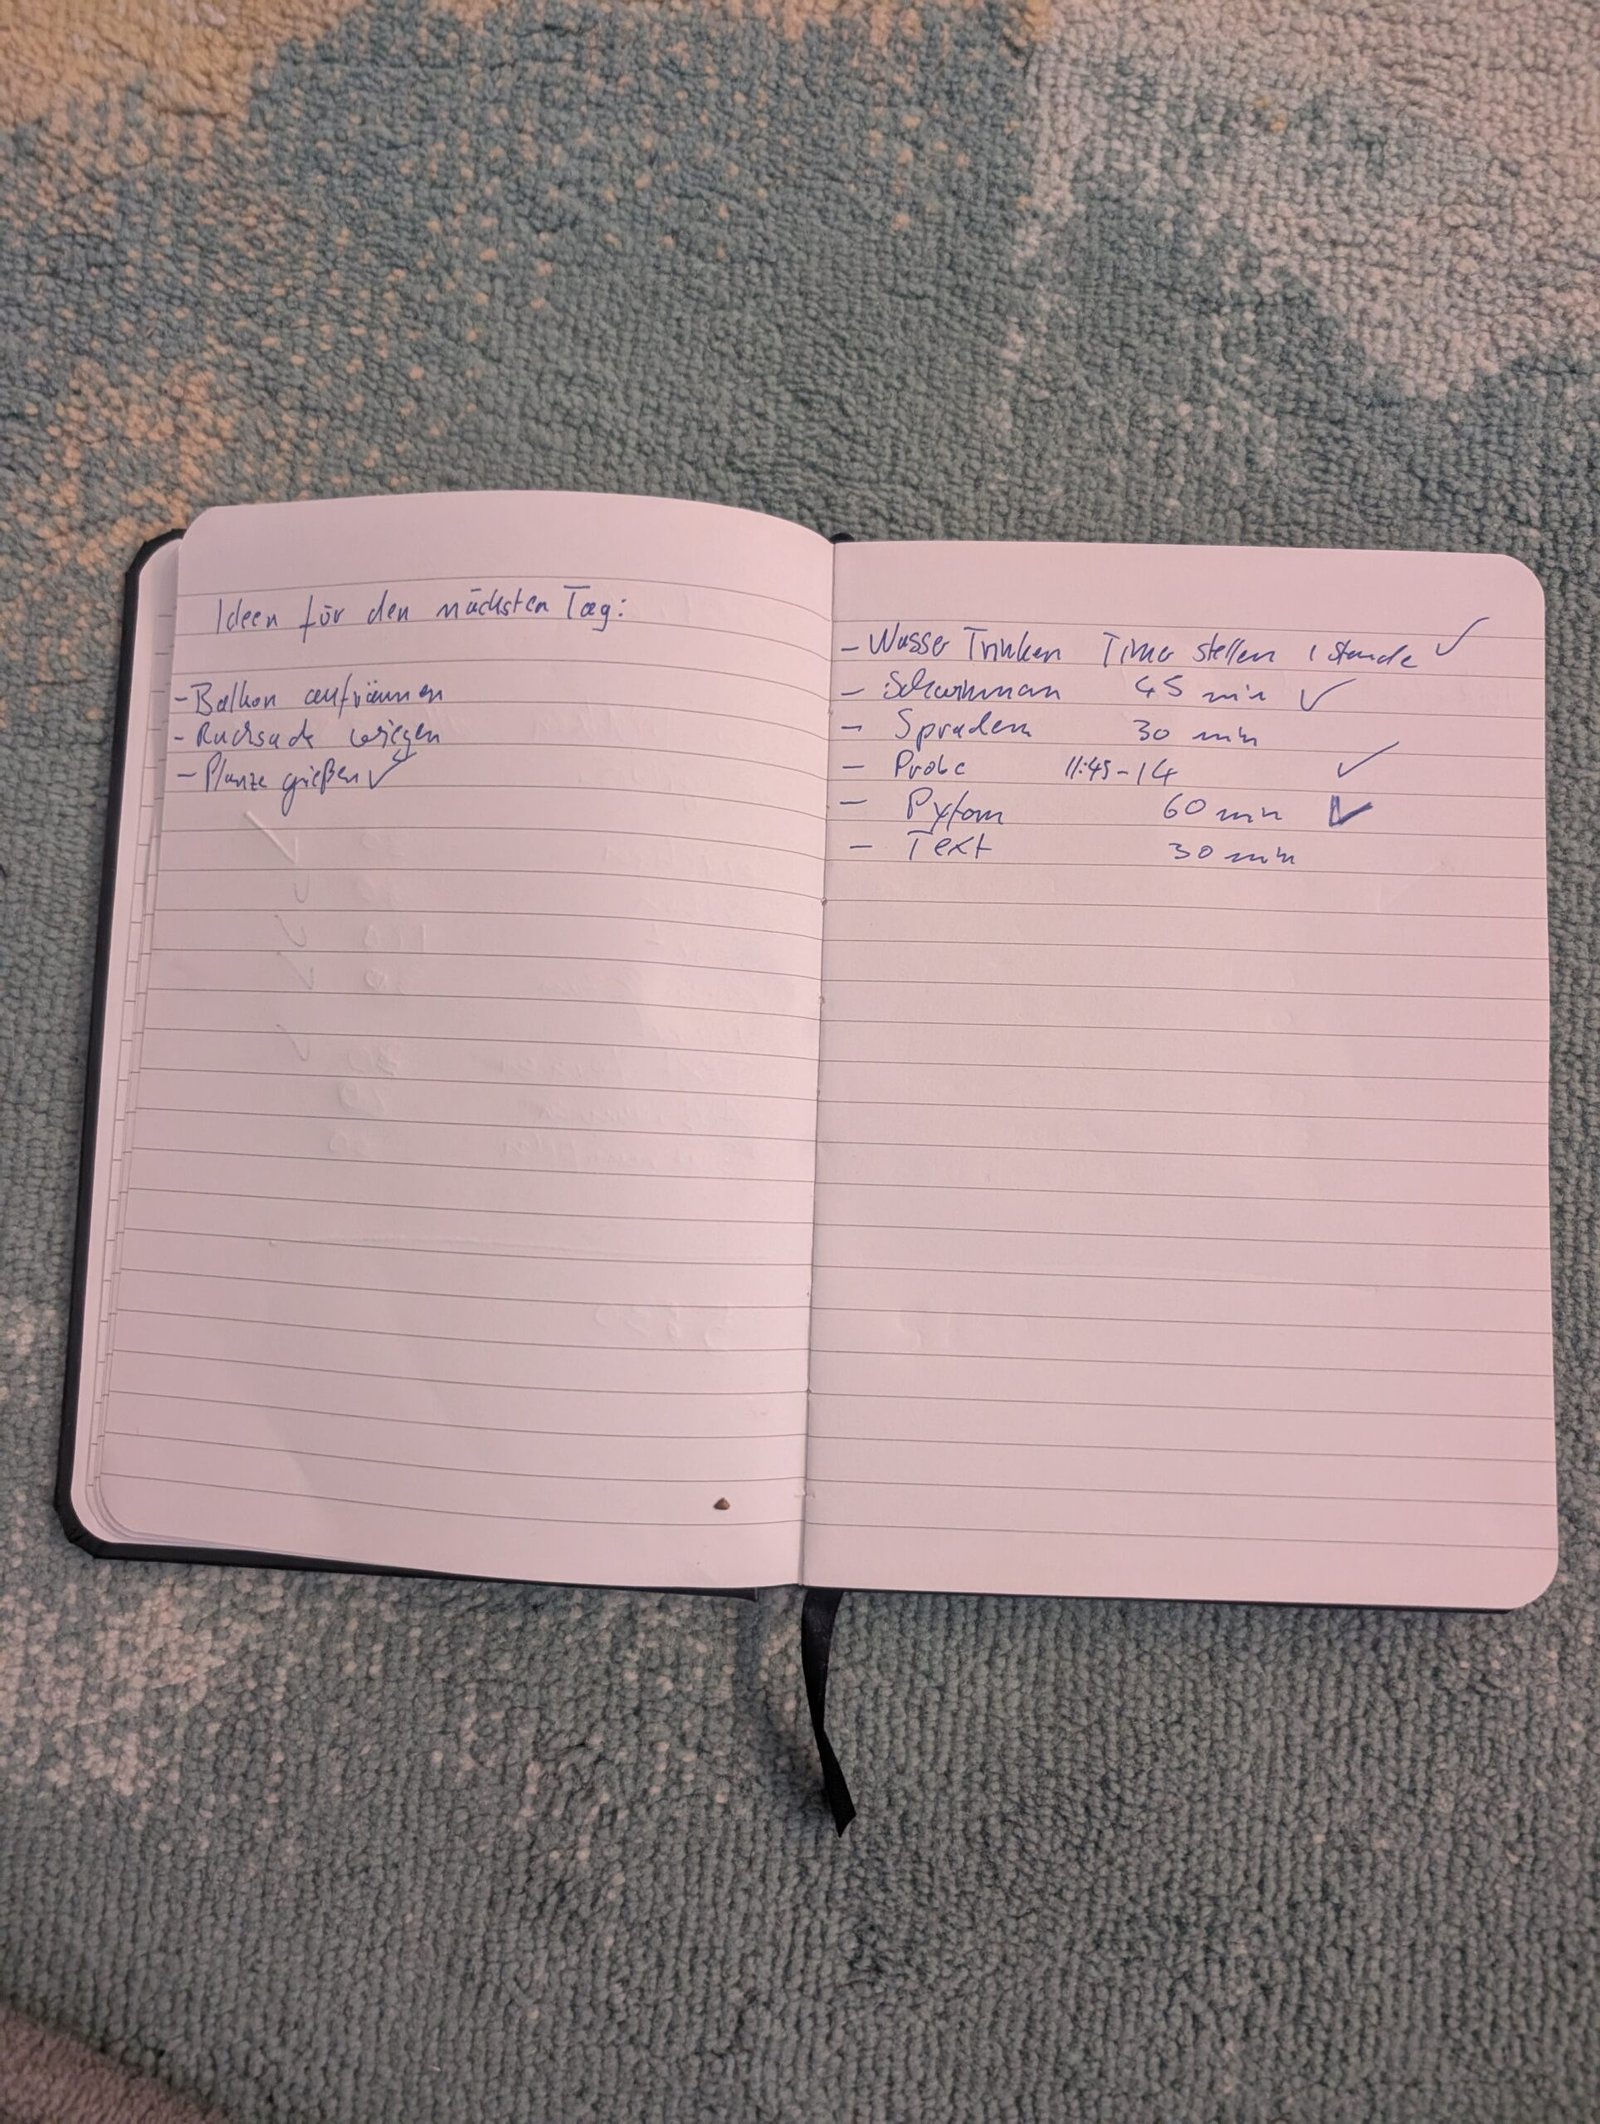 Ideen für den nächsten Tag:
- Balkon aufräumen
- Rucksack wiegen
- Planze gießen ✓
- Wasser Trinken Timer stellen 1 Stunde ✓
- Schwimman 45 min ✓
- Sprachen 30 min
- Probe 11:45-14 ✓
- Pyton 60 min ✓
- Text 30 min